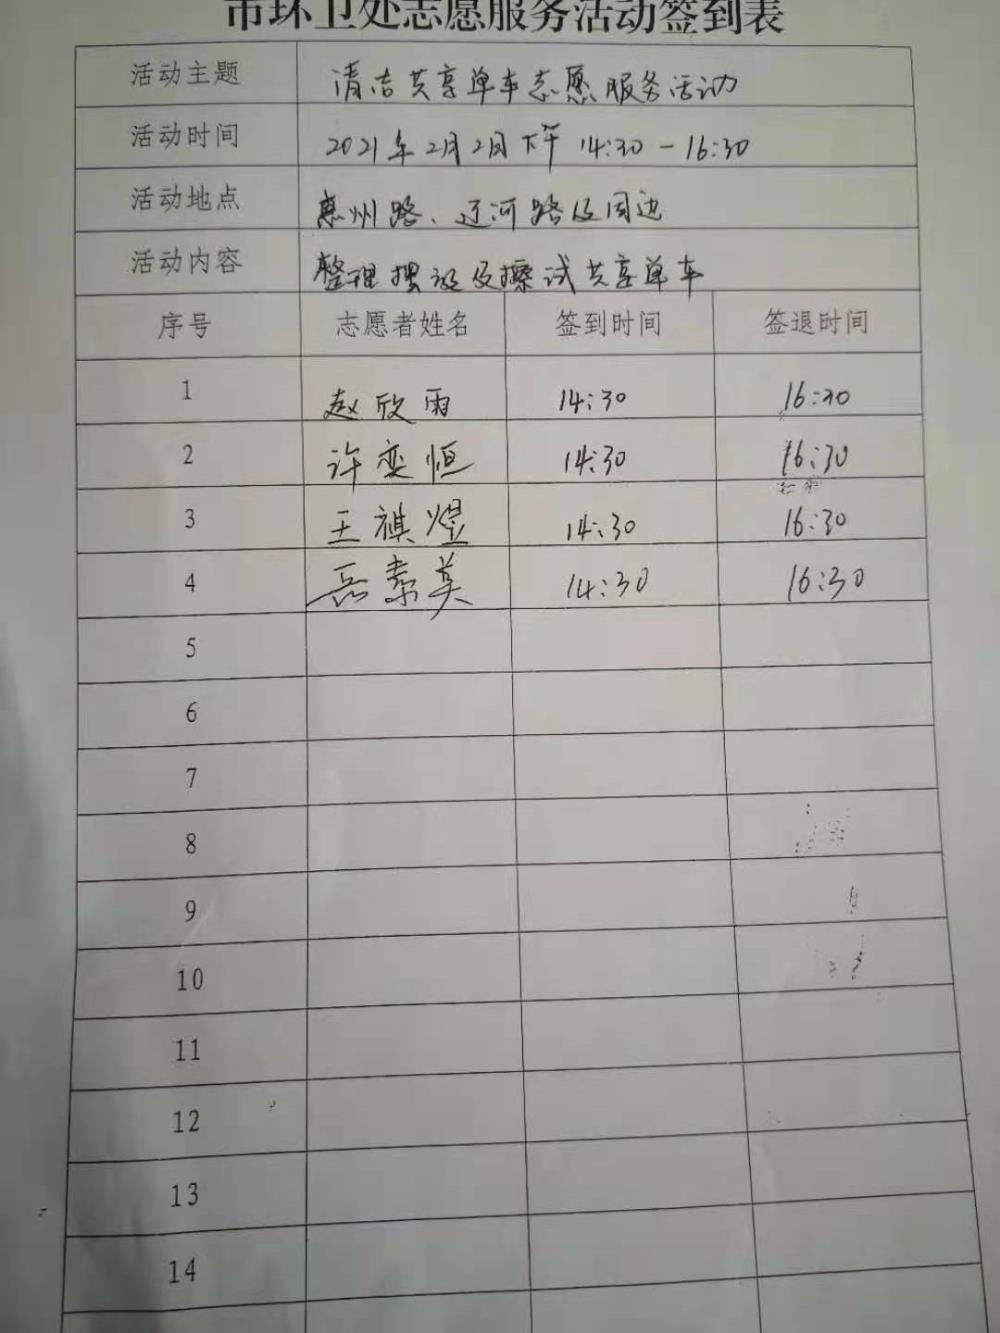 市环卫处志愿服务活动签到表
活动主题 清洁共享单车志愿服务活动
活动时间 2021年2月2日下午 14:30-16:30
活动地点 惠州路、辽河路及周边
活动内容 整理摆放及擦试共享单车
序号 志愿者姓名 签到时间 签退时间
1 赵欣雨 14:30 16:30
2 许奕恒 14:30 16:30
3 王祺煜 14:30 16:30
4 岳素英 14:30 16:30
5
6
7
8
9
10
11
12
13
14